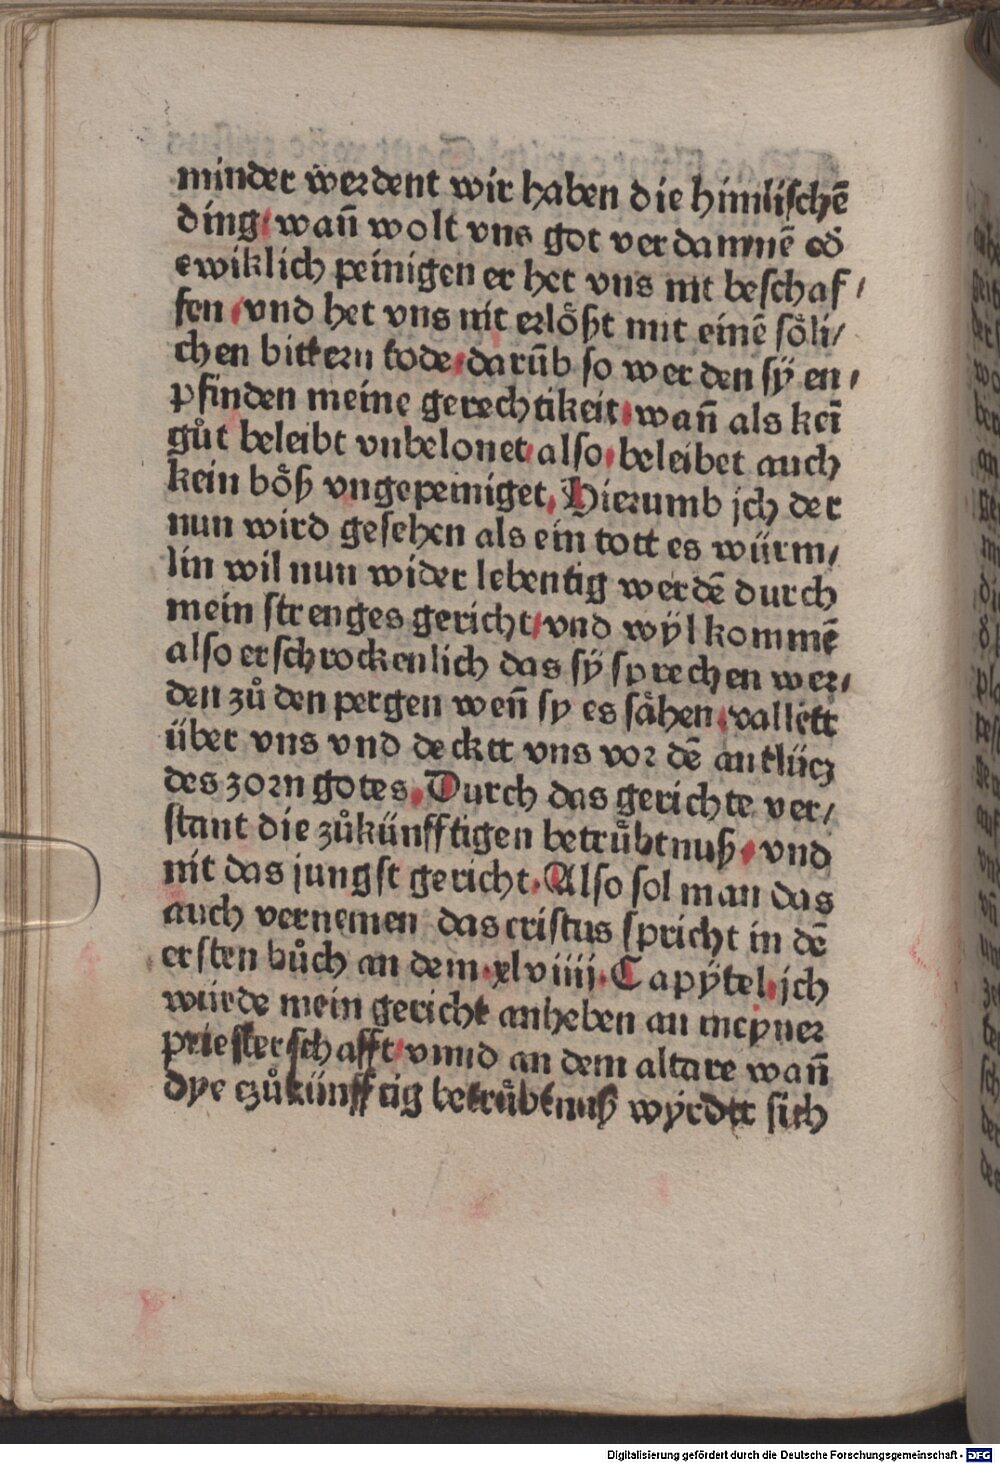 minder werdent wir haben die himlischē
ding / wañ wolt vns got verdammē od̄
ewiklich peinigen er het vns nit beschaf /
fen / vnd het vns nit erlößt mit einē söli /
chen bittern tode / darūb so werden sÿ en /
pfinden meine gerechtikeit / wañ als keī
gůt beleibt vnbelonet / also / beleibet auch
kein böß vngepeiniget. Hierumb jch der
nun wird gesehen als ein tottes würm /
lin wil nun wider lebentig werdē durch
mein strenges gericht / vnd wÿl kommē
also erschrockenlich das sÿ sprechen wer /
den zů den pergen weñ sy es sähen / vallett
über vns vnd decktt vns vor dē antlücz
des zorn gotes. Durch das gerichte ver /
stant die zůkünfftigen betrůbtnuß / vnd
nit das jungst gericht. Also sol man das
auch vernemen das cristus spricht in dē
ersten bůch an dem .xlviiij. Capÿtel / jch
würde mein gericht anheben an meyner
priesterschafft / vnnd an dem altare wañ
dye czůkünfftig betrůbtnuß wÿrdtt sich
Digitalisierung gefördert durch die Deutsche Forschungsgemeinschaft - DFG